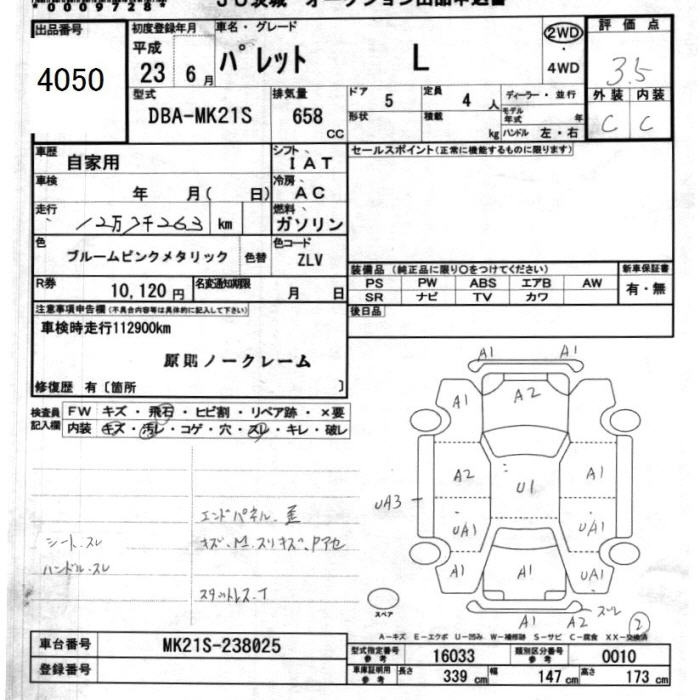 出品番号
4050
初度登録年月
平成
23 6月
車名・グレード
パレット L
2WD
・
4WD
評価点
3.5
外装 内装
C C
型式
DBA-MK21S
排気量
658
CC
ドア
5
定員
4 人
形状
積載
kg
ディーラー・並行
モデル年式 年
ハンドル 左・右
車歴
自家用
シフト、
IAT
車検
年 月( 日)
冷房、
AC
走行
12万7千263 km
燃料、
ガソリン
色
ブルームピンクメタリック
色替
色コード
ZLV
R券
10,120円
名変通知期限
月 日
セールスポイント(正常に機能するものに限ります)
装備品 (純正品に限り○をつけてください)
PS PW ABS エアB AW
SR ナビ TV カワ
新車保証書
有・無
後日品
注意事項申告欄(不具合内容等は具体的に記入して下さい)
車検時走行112900km
原則ノークレーム
修復歴 有〔箇所 〕
検査員記入欄
FW キズ・飛石・ヒビ割・リペア跡・×要
内装 キズ・汚レ・コゲ・穴・スレ・キレ・破レ
シート.スレ
ハンドル.スレ
エンドパネル.歪
キズ.M.スリキズ.Pアセ
スタットレス.T
A1 A1
A1 A2
A2 A1
U1
UA3
UA1 UA1
A1 A1 UA1
A1 A2 スレ
スペア
2
A-キズ E-エクボ U-凹み W-補修跡 S-サビ C-腐食 XX-交換済
車台番号
MK21S-238025
登録番号
型式指定番号
参考
16033
類別区分番号
参考
0010
車庫証明用
参考
長さ 339 cm
幅 147 cm
高さ 173 cm